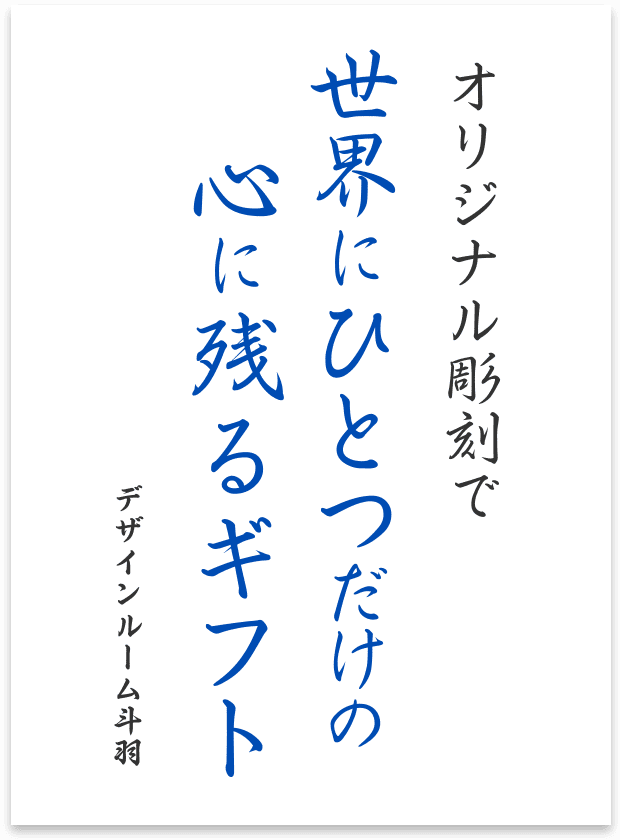 オリジナル彫刻で
世界にひとつだけの
心に残るギフト
デザインルーム斗羽